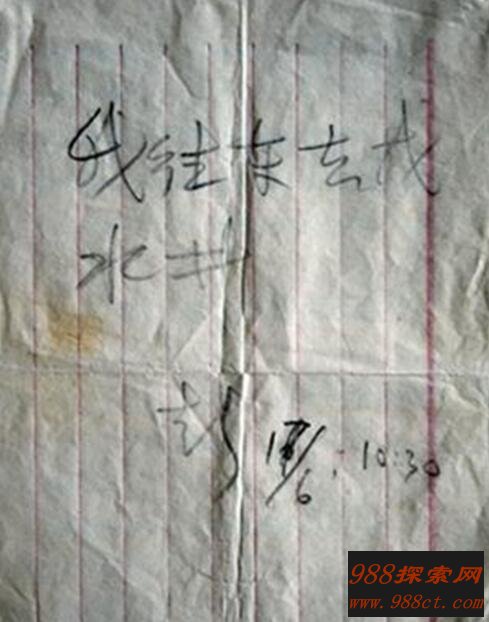 我往东去找
水井
彭 17/6: 10:30
988探索网
www.988ct.com